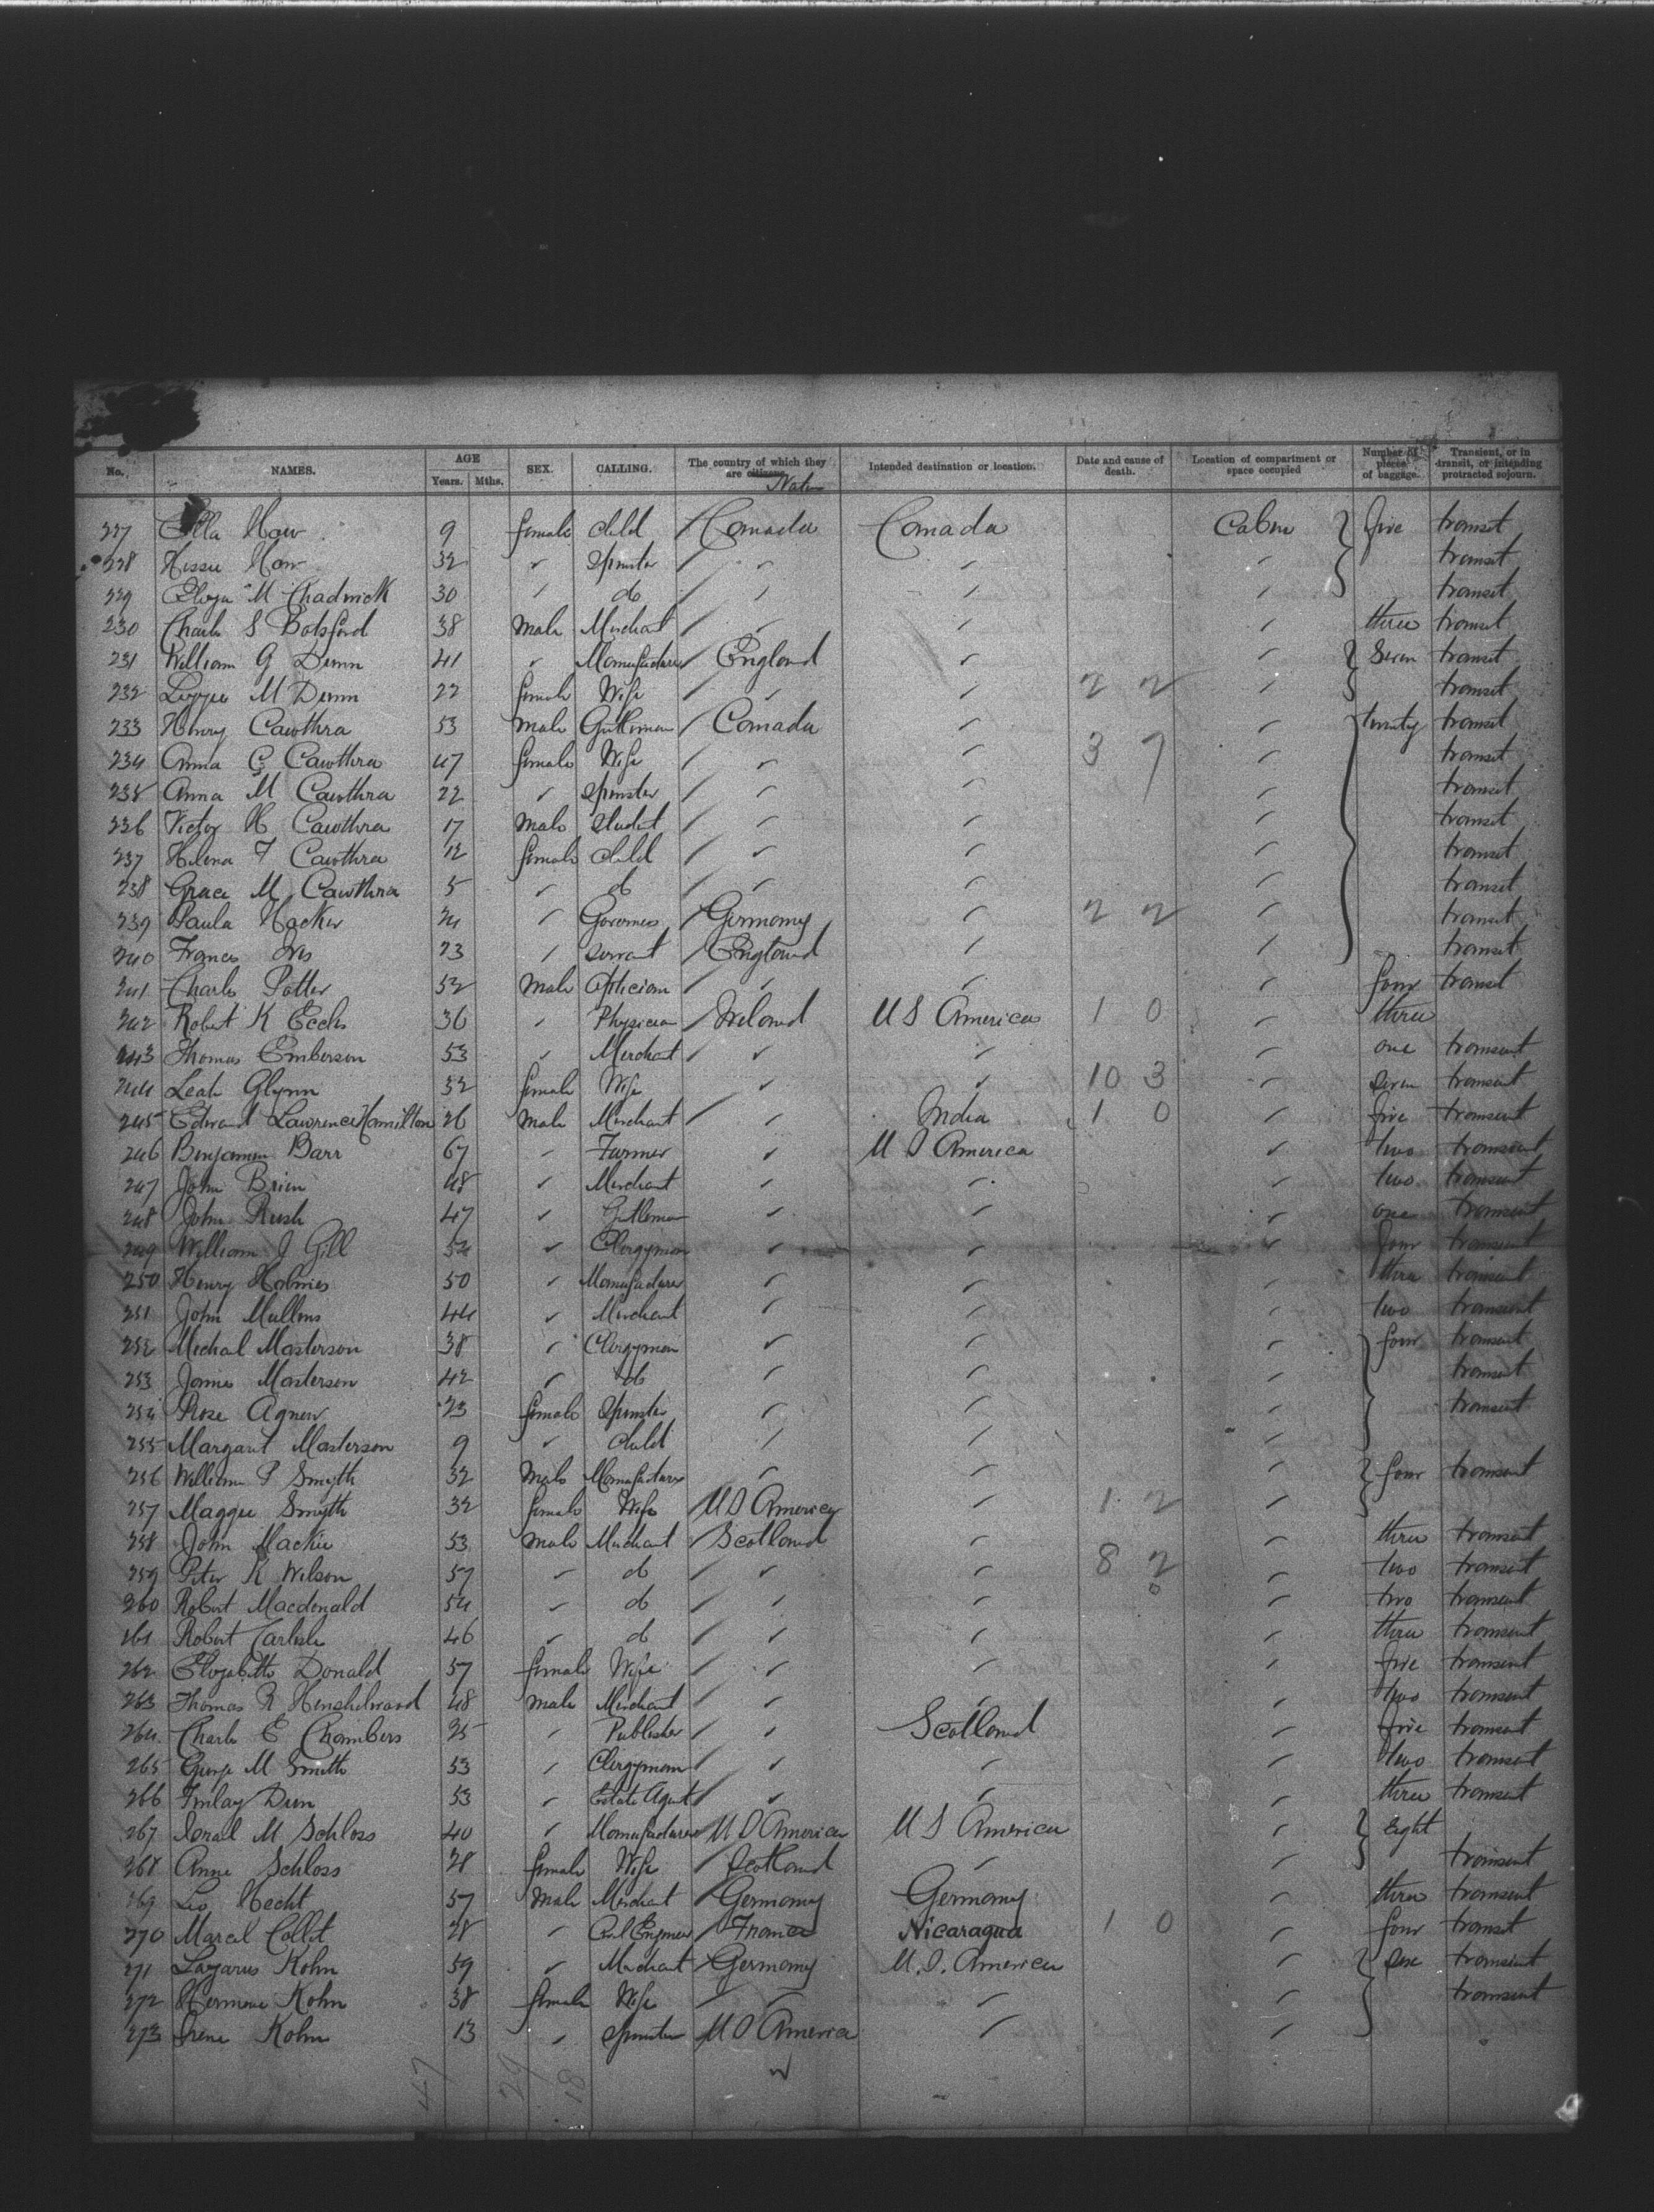 No. NAMES. AGE Years. Mths. SEX. CALLING. The country of which they are citizens. Native Intended destination or location. Date and cause of death. Location of compartment or space occupied Number of pieces of baggage. Transient, or in transit, or intending protracted sojourn.
227 Ella How 9 female child Canada Canada Cabin five transit
228 How 32 " Spinster " " " transit
229 Eliza M Chadwick 30 " do " " " transit
230 Charles S Botsford 38 Male Merchant " " " three transit
231 William G Dunn 41 " Manufacturer England " " Seven transit
232 Lizzie M Dunn 22 female Wife " " 2 2 " transit
233 Henry Cawthra 53 Male Gentleman Canada " " twenty transit
234 Anna C Cawthra 47 female Wife " " 3 7 " transit
235 Anna M Cawthra 22 " Spinster " " " transit
236 Victor H Cawthra 17 Male Student " " " transit
237 Helena F Cawthra 12 female child " " " transit
238 Grace M Cawthra 5 " do " " " transit
239 Paula Hacker 24 " Governess Germany " 2 2 " transit
240 Frances 23 " Servant England " " transit
241 Charles Potter 52 Male Optician " " " four transit
242 Robert K Eccles 36 " Physician Ireland U S America 1 0 " three
243 Thomas Emberson 53 " Merchant " " " one transient
244 Leah Glynn 32 female Wife " " 10 3 " seven transient
245 Edward Lawrence Hamilton 26 Male Merchant " India 1 0 " five transient
246 Benjamin Barr 67 " Farmer " U S America " two transient
247 John Brien 48 " Merchant " " " two transient
248 John Rush 47 " Gentleman " " " one transient
249 William J Gill 54 " Clergyman " " " four transient
250 Henry Holmes 50 " Manufacturer " " " three transient
251 John Mullins 44 " Merchant " " " two transient
252 Michal Masterson 38 " Clergyman " " " four transient
253 James Masterson 42 " do " " " transient
254 Rose Agnew 23 female Spinster " " " transient
255 Margaret Masterson 9 " child " " "
256 William P Smyth 32 Male Manufacturer " " " four transient
257 Maggie Smyth 32 female Wife U S America " 1 2 "
258 John Mackie 53 Male Merchant Scotland " " three transient
259 Peter K Wilson 57 " do " " 8 2 " two transient
260 Robert Macdonald 54 " do " " 0 " two transient
261 Robert Carlisle 46 " do " " " three transient
262 Elizabeth Donald 57 female Wife " " " five transient
263 Thomas R Henshelwood 48 Male Merchant " " " two transient
264 Charles E Chambers 25 " Publisher " Scotland " five transient
265 George M Smith 53 " Clergyman " " " two transient
266 Finlay Dun 53 " Estate Agent " " " three transient
267 Israel M Schloss 40 " Manufacturer U S America U S America " Eight
268 Anne Schloss 28 female Wife Scotland " " transient
269 Leo Hecht 57 Male Merchant Germany Germany " three transient
270 Marcel Collet 28 " Civil Engineer France Nicaragua 1 0 " four transit
271 Lazarus Kohn 59 " Merchant Germany U. S. America " transient
272 Hermine Kohn 38 female Wife " " " transient
273 Irene Kohn 13 " Spinster U S America " "
47 29 18